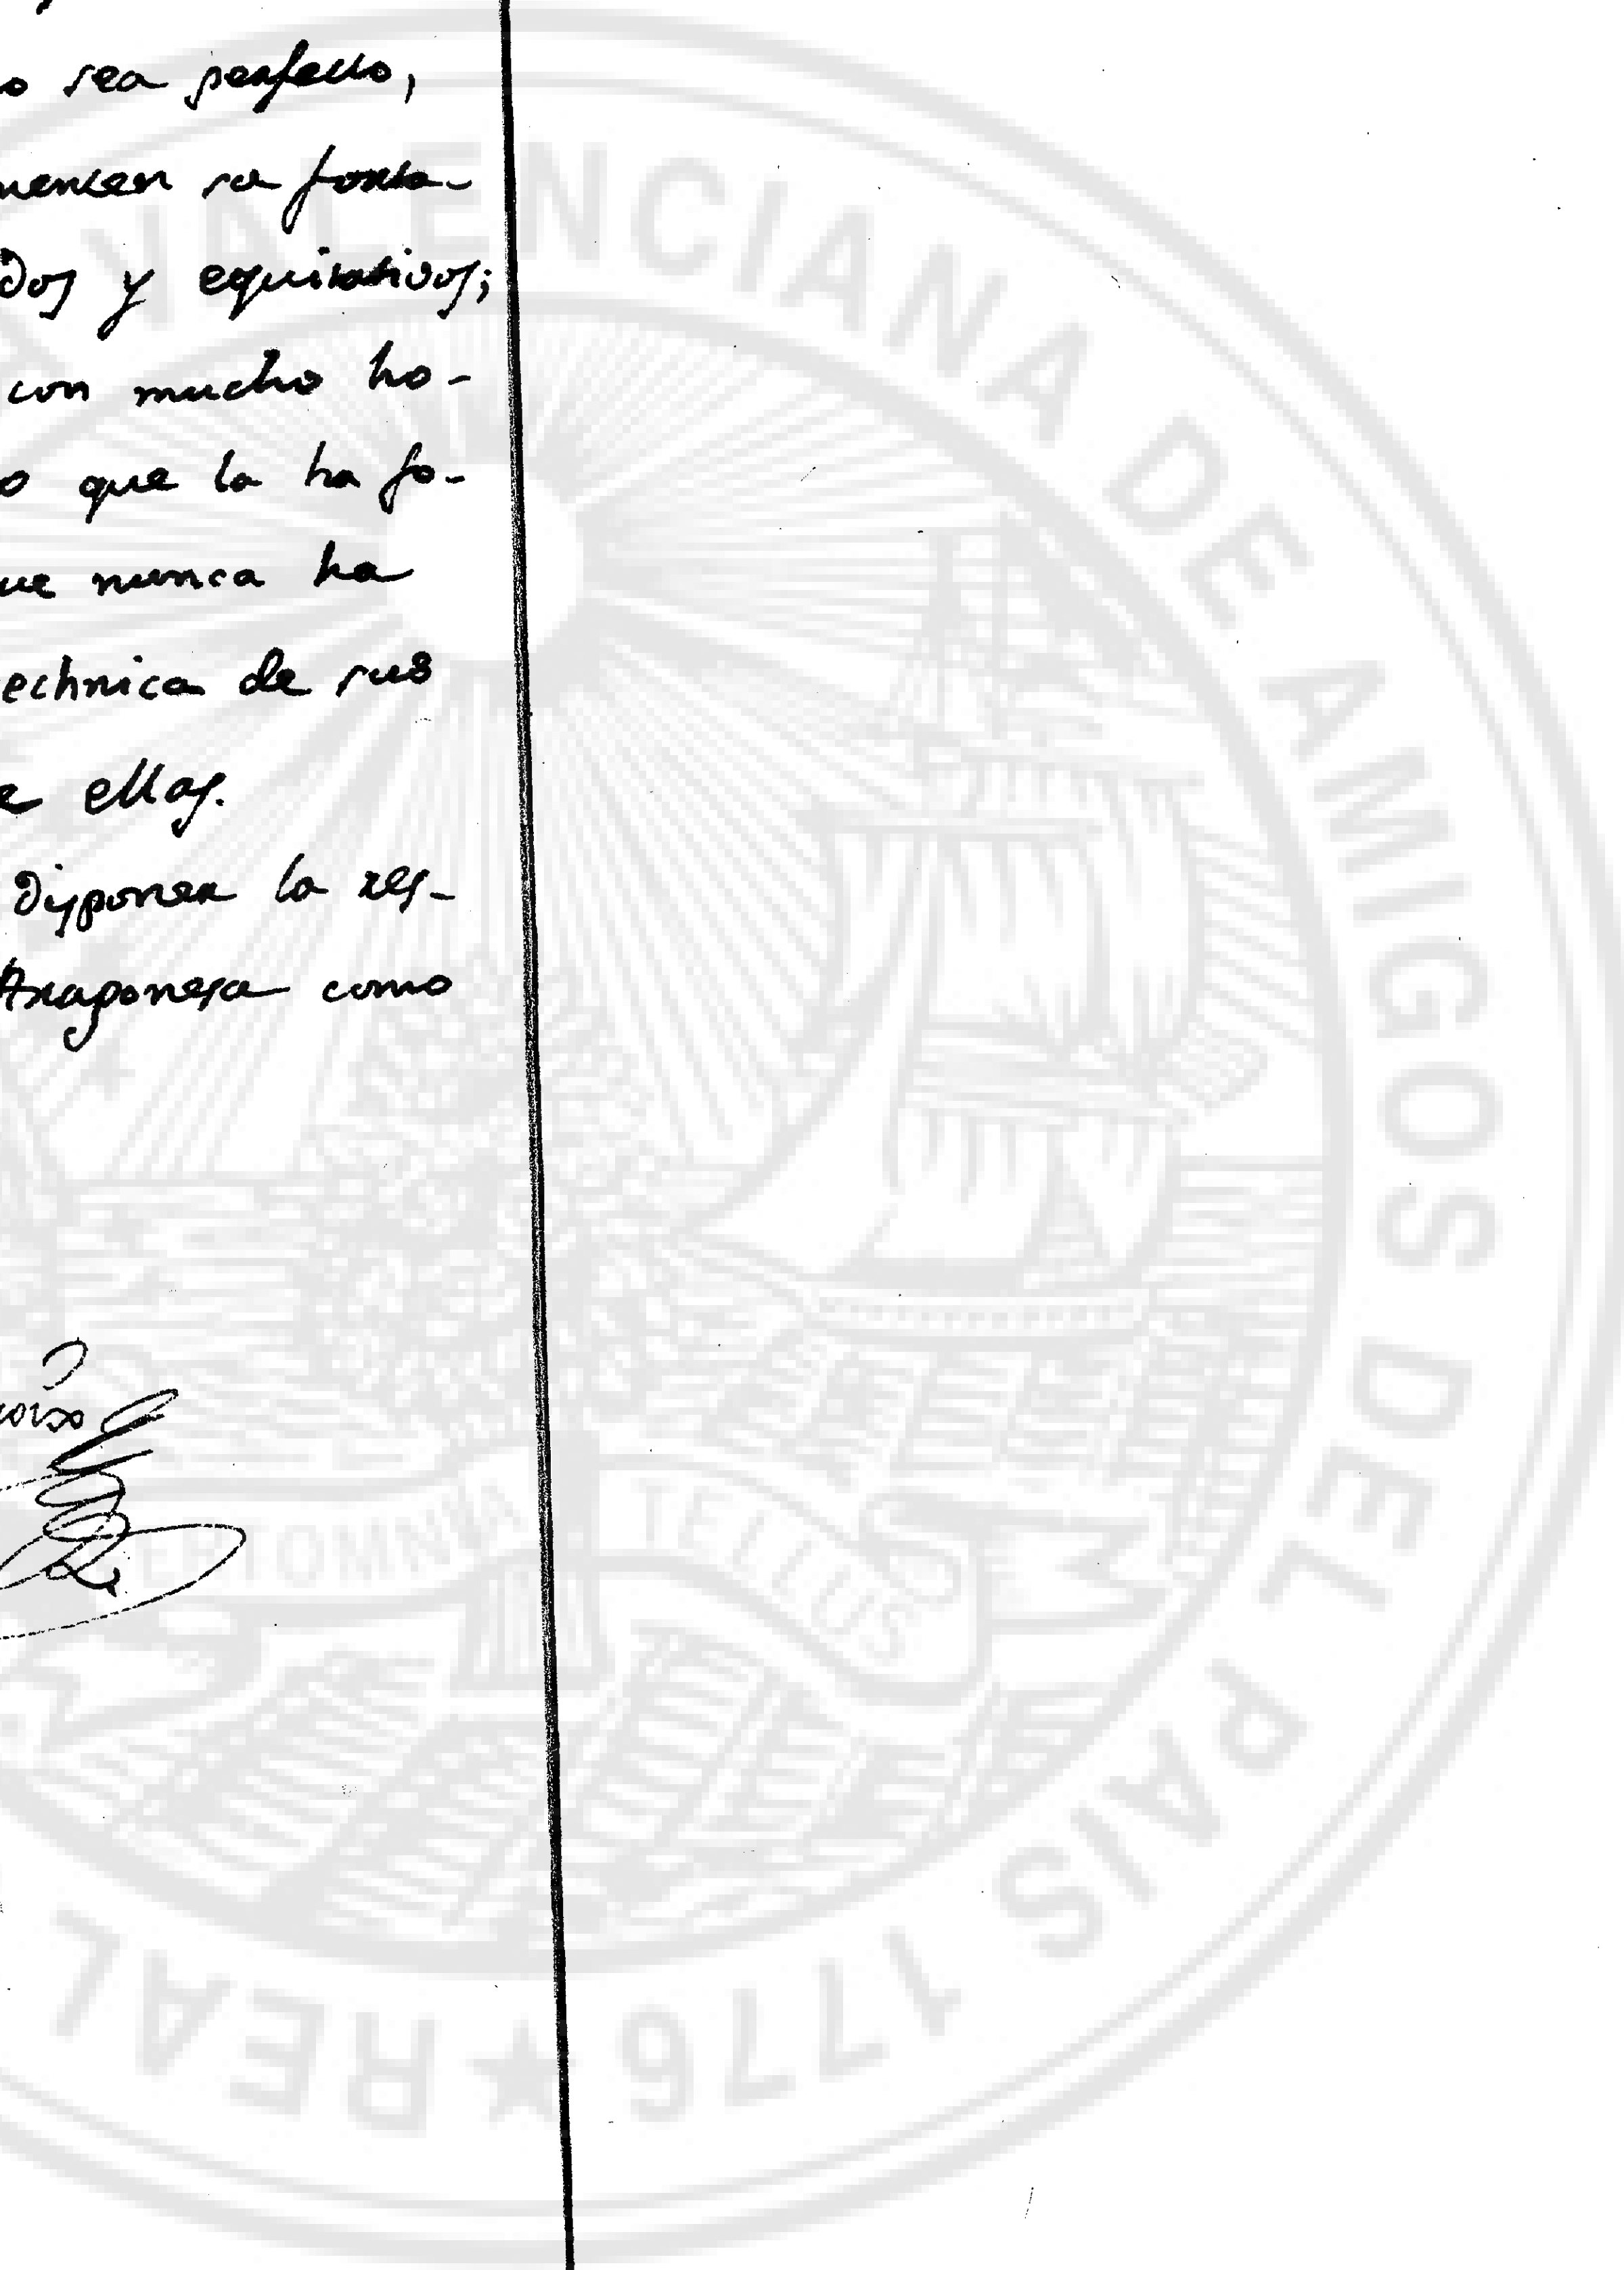 o sea perfecto,
mencen su forta-
dos y equitativos;
con mucho ho-
o que la ha fo-
ue nunca ha
echnica de sus
e ellas.
disponer la res-
Aragonesa como
REAL VALENCIANA DE AMIGOS DEL PAIS 1776
OMNIA TELLUS